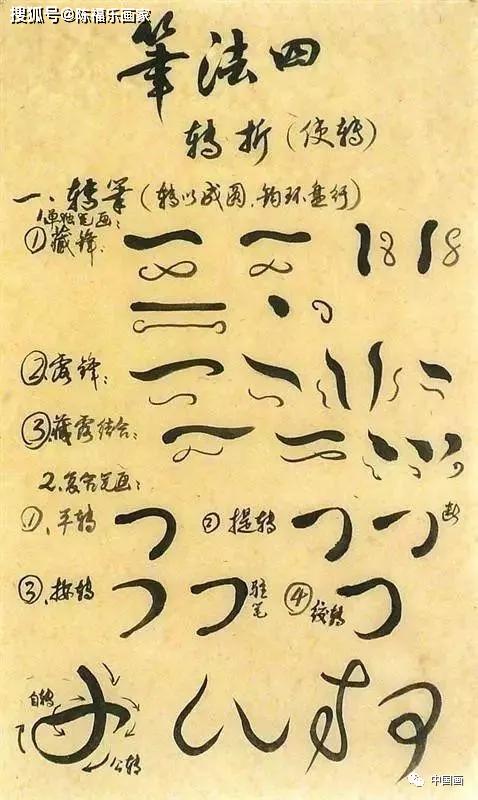 搜狐号@陈福乐画家
筆法四
转折(使转)
一、转笔(转以成圆、钩环盘行)
1、单独笔画:
①藏锋:
②露锋:
③藏露结合:
2、复合笔画:
①、平转
②提转
断
③、按转
驻笔
④绞转
自转
公转
中国画